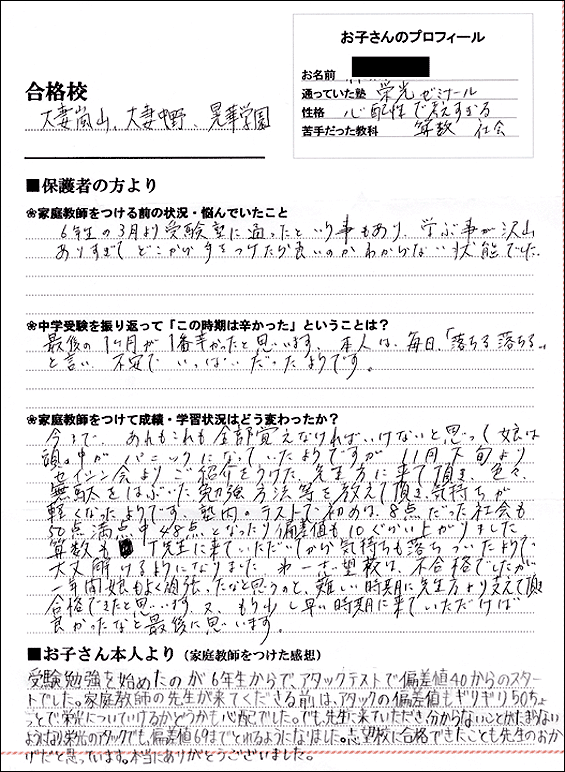 お子さんのプロフィール
お名前
通っていた塾 栄光ゼミナール
性格 心配性で考えすぎる
苦手だった教科 算数 社会
合格校
大妻嵐山、大妻中野、晃華学園
■保護者の方より
❀家庭教師をつける前の状況・悩んでいたこと
6年生の3月より受験塾に通ったという事もあり、学ぶ事が沢山
ありすぎてどこから手をつけたら良いのかわからない状態でした。
❀中学受験を振り返って「この時期は辛かった」ということは?
最後の1ヶ月が1番辛かったと思います。本人は、毎日、「落ちる落ちる」
と言い、不安でいっぱいだったようです。
❀家庭教師をつけて成績・学習状況はどう変わったか?
今まで、あれもこれも全部覚えなければいけないと思って娘は
頭の中がパニックになっていたようですが11月下旬より
セイシン会よりご紹介をうけた、先生方に来て頂き、色々、
無駄をはぶいた勉強方法等を教えて頂き気持ちが
軽くなったようです。塾内のテストで初めは、8点だった社会も
50点満点中48点となったり偏差値も10ぐらい上がりました
算数も T先生に来ていただいてから気持ちも落ちついたようで
大丈夫 けるようになりました 第一希望校は、不合格でしたが
一年間娘もよく頑張ったなと思うのと、難しい時期に先生方より支えて頂
合格できたと思います。又、もう少し早い時期に来ていただけば
良かったなと最後に思います。
■お子さん本人より(家庭教師をつけた感想)
受験勉強を始めたのが6年生からで、アタックテストで偏差値40からのスター
トでした。家庭教師の先生が来てくださる前は、アタックの偏差値もギリギリ50ちょ
っとで栄光についていけるかどうかも心配でした。でも、先生に来ていただき分からないことがたまらない
ようになり栄光のアタックでも、偏差値69までとれるようになりました。志望校に合格できたことも先生のおか
げだと思っています。本当にありがとうございました。